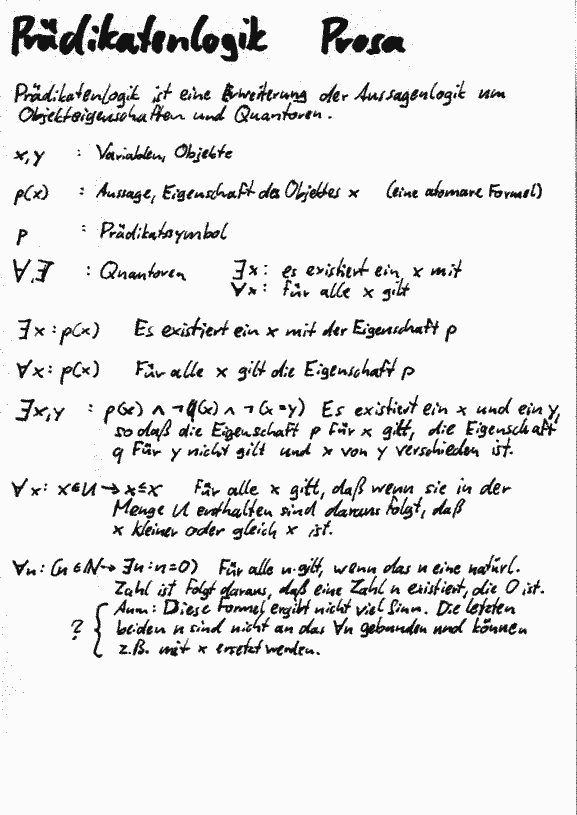 Prädikatenlogik Prosa
Prädikatenlogik ist eine Erweiterung der Aussagenlogik um
Objekteigenschaften und Quantoren.
x,y : Variablen, Objekte
p(x) : Aussage, Eigenschaft des Objektes x (eine atomare Formel)
p : Prädikatssymbol
∀,∃ : Quantoren ∃x: es existiert ein x mit
∀x: für alle x gilt
∃x:p(x) Es existiert ein x mit der Eigenschaft p
∀x:p(x) Für alle x gilt die Eigenschaft p
∃x,y : p(x) ∧ ¬q(x) ∧ ¬(x=y) Es existiert ein x und ein y,
so daß die Eigenschaft p für x gilt, die Eigenschaft
q für y nicht gilt und x von y verschieden ist.
∀x: x∈U → x≤x Für alle x gilt, daß wenn sie in der
Menge U enthalten sind daraus folgt, daß
x kleiner oder gleich x ist.
∀n: (n∈N → ∃n:n=0) Für alle n gilt, wenn das n eine natürl.
Zahl ist folgt daraus, daß eine Zahl n existiert, die 0 ist.
Anm.: Diese Formel ergibt nicht viel Sinn. Die letzten
? { beiden n sind nicht an das ∀n gebunden und können
z.B. mit x ersetzt werden.